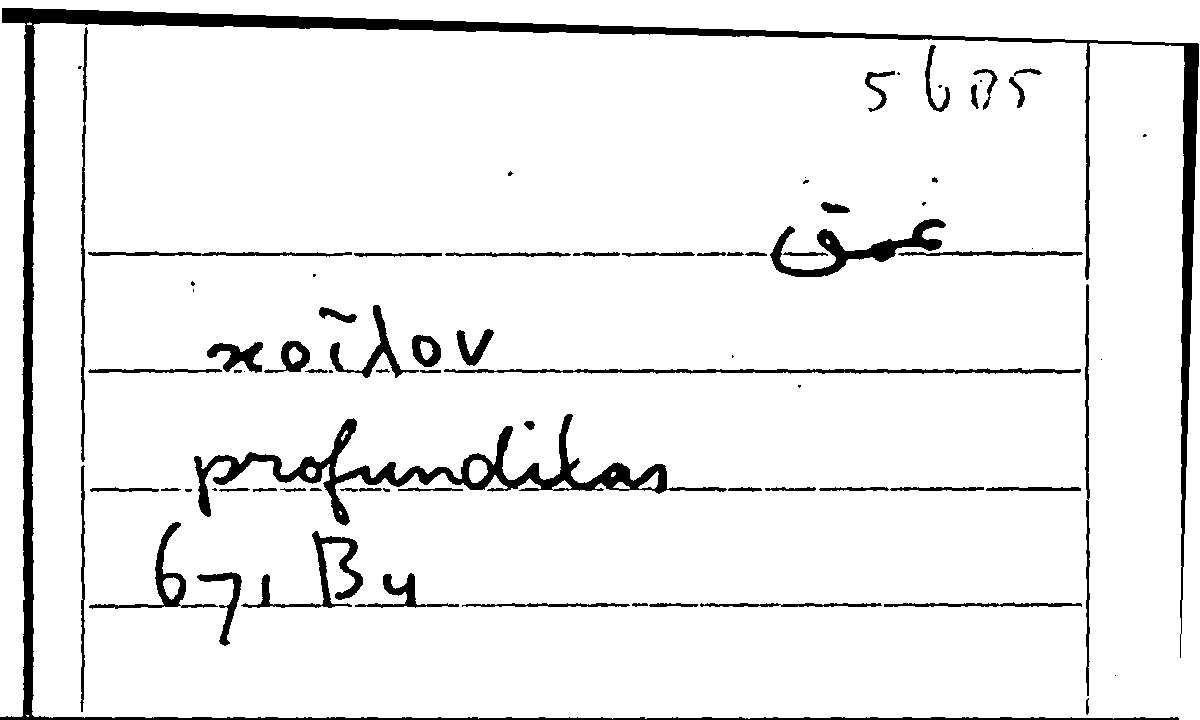 56 B5
عمق
κοῖλον
profunditas
671 B4